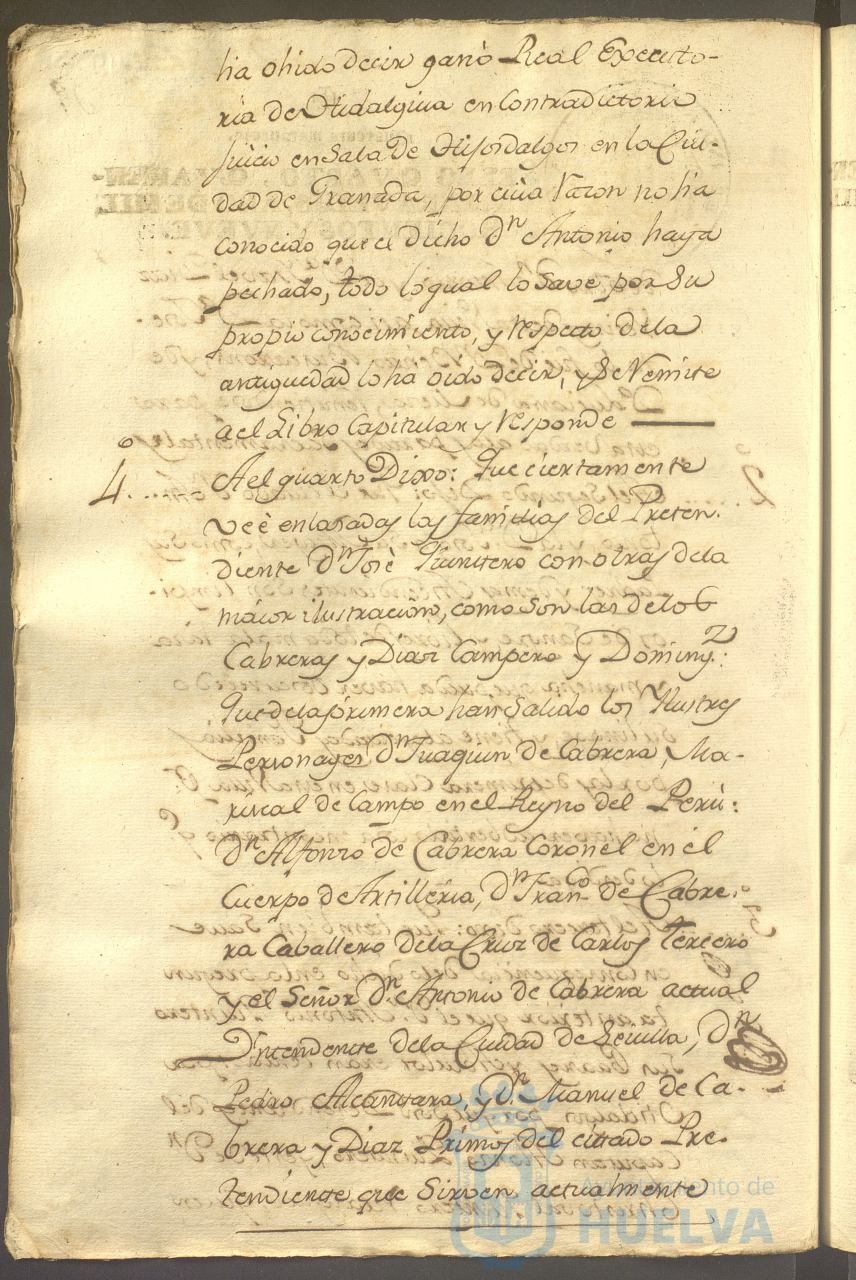 ha ohido decir ganó Real Executo-
ria de Hidalguia en Contradictorio
Juicio en Sala de Hijosdalgos en la Ciu-
dad de Granada, por cuia razon no ha
conocido que el dicho Dn Antonio haya
pechado, todo lo qual lo save por su
propio conocimiento, y respecto de la
antiguedad lo ha oido decir, y se remite
a el Libro Capitular y responde
4.o A el quarto Dixo: Que ciertamente
ve è enlasadas las familias del Preten-
diente Dn Josè Quintero con otras de la
maior ilustracion, como son las de los
Cabreras y Diaz Campero y Doming.z:
Que de la primera han salido los Ilustres
Personages Dn Juaquin de Cabrera, Ma-
riscal de Campo en el Reyno del Perú:
Dn Alfonzo de Cabrera Coronel en el
Cuerpo de Artilleria, Dn Franco de Cabre-
ra Caballero de la Cruz de Carlos Tercero
y el Señor Dn Antonio de Cabrera actual
Yntendente de la Ciudad de Sevilla, Dn
Pedro Alcantara, y Dn Manuel de Ca-
brera y Diaz Primos del cittado Pre-
tendiente que Sirven actualmente
Ayuntamiento de
HUELVA